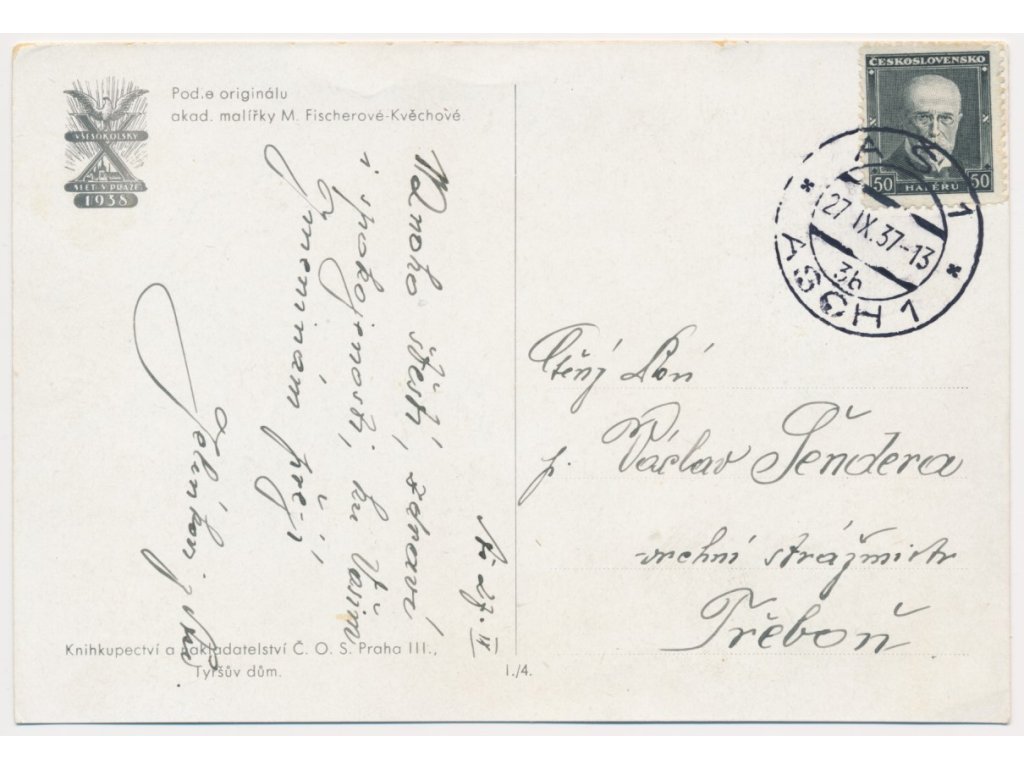 VŠESOKOLSKÝ
SLET V PRAZE
1938
Pod.e originálu
akad. malířky M. Fischerové-Kvěchové
ČESKOSLOVENSKO
50 HALÉŘŮ 50
AŠ 1
27.IX.37-13
3b
ASCH 1
Aš 27. IX
Mnoho štěstí, zdraví
i spokojenosti, ku Vašim
jmeninám přejí
Ctěný Pán
p. Václav Šendera
vrchní strážmistr
Třeboň
Knihkupectví a nakladatelství Č. O. S. Praha III.,
Tyršův dům.
I./4.